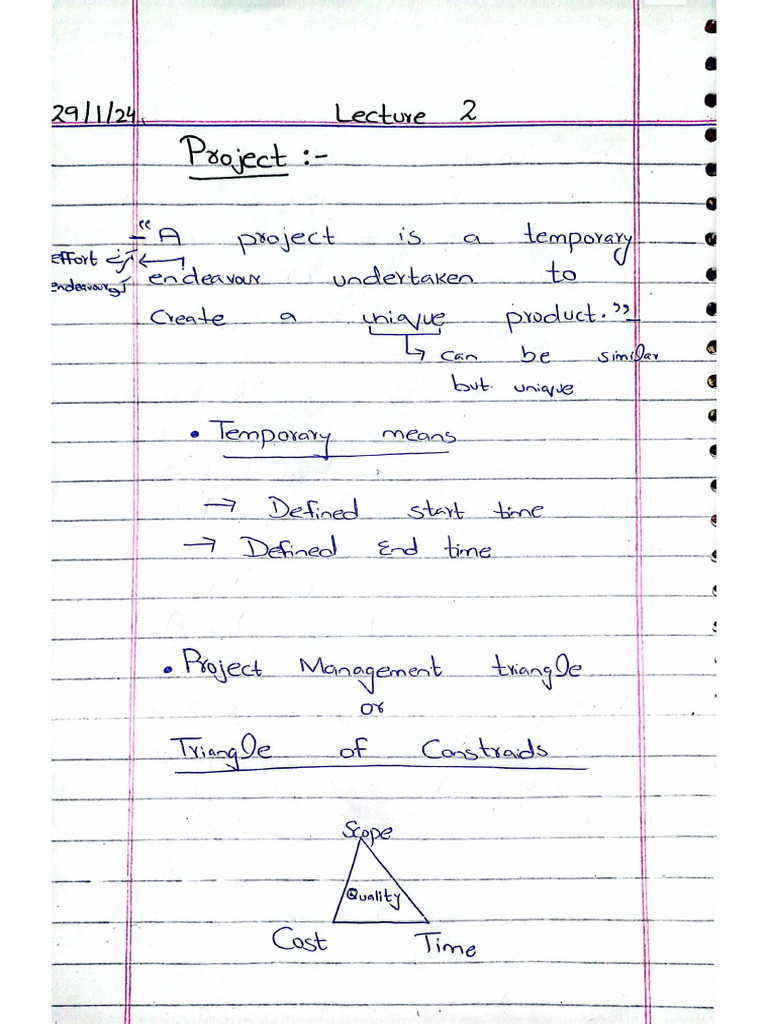 29/1/24. Lecture 2
Project :-
“A project is a temporary
effort
endeavour undertaken to
endeavour
create a unique product.”
can be similar
but unique
• Temporary means
→ Defined start time
→ Defined End time
• Project Management triangle
or
Triangle of Constraids
Scope
Quality
Cost Time